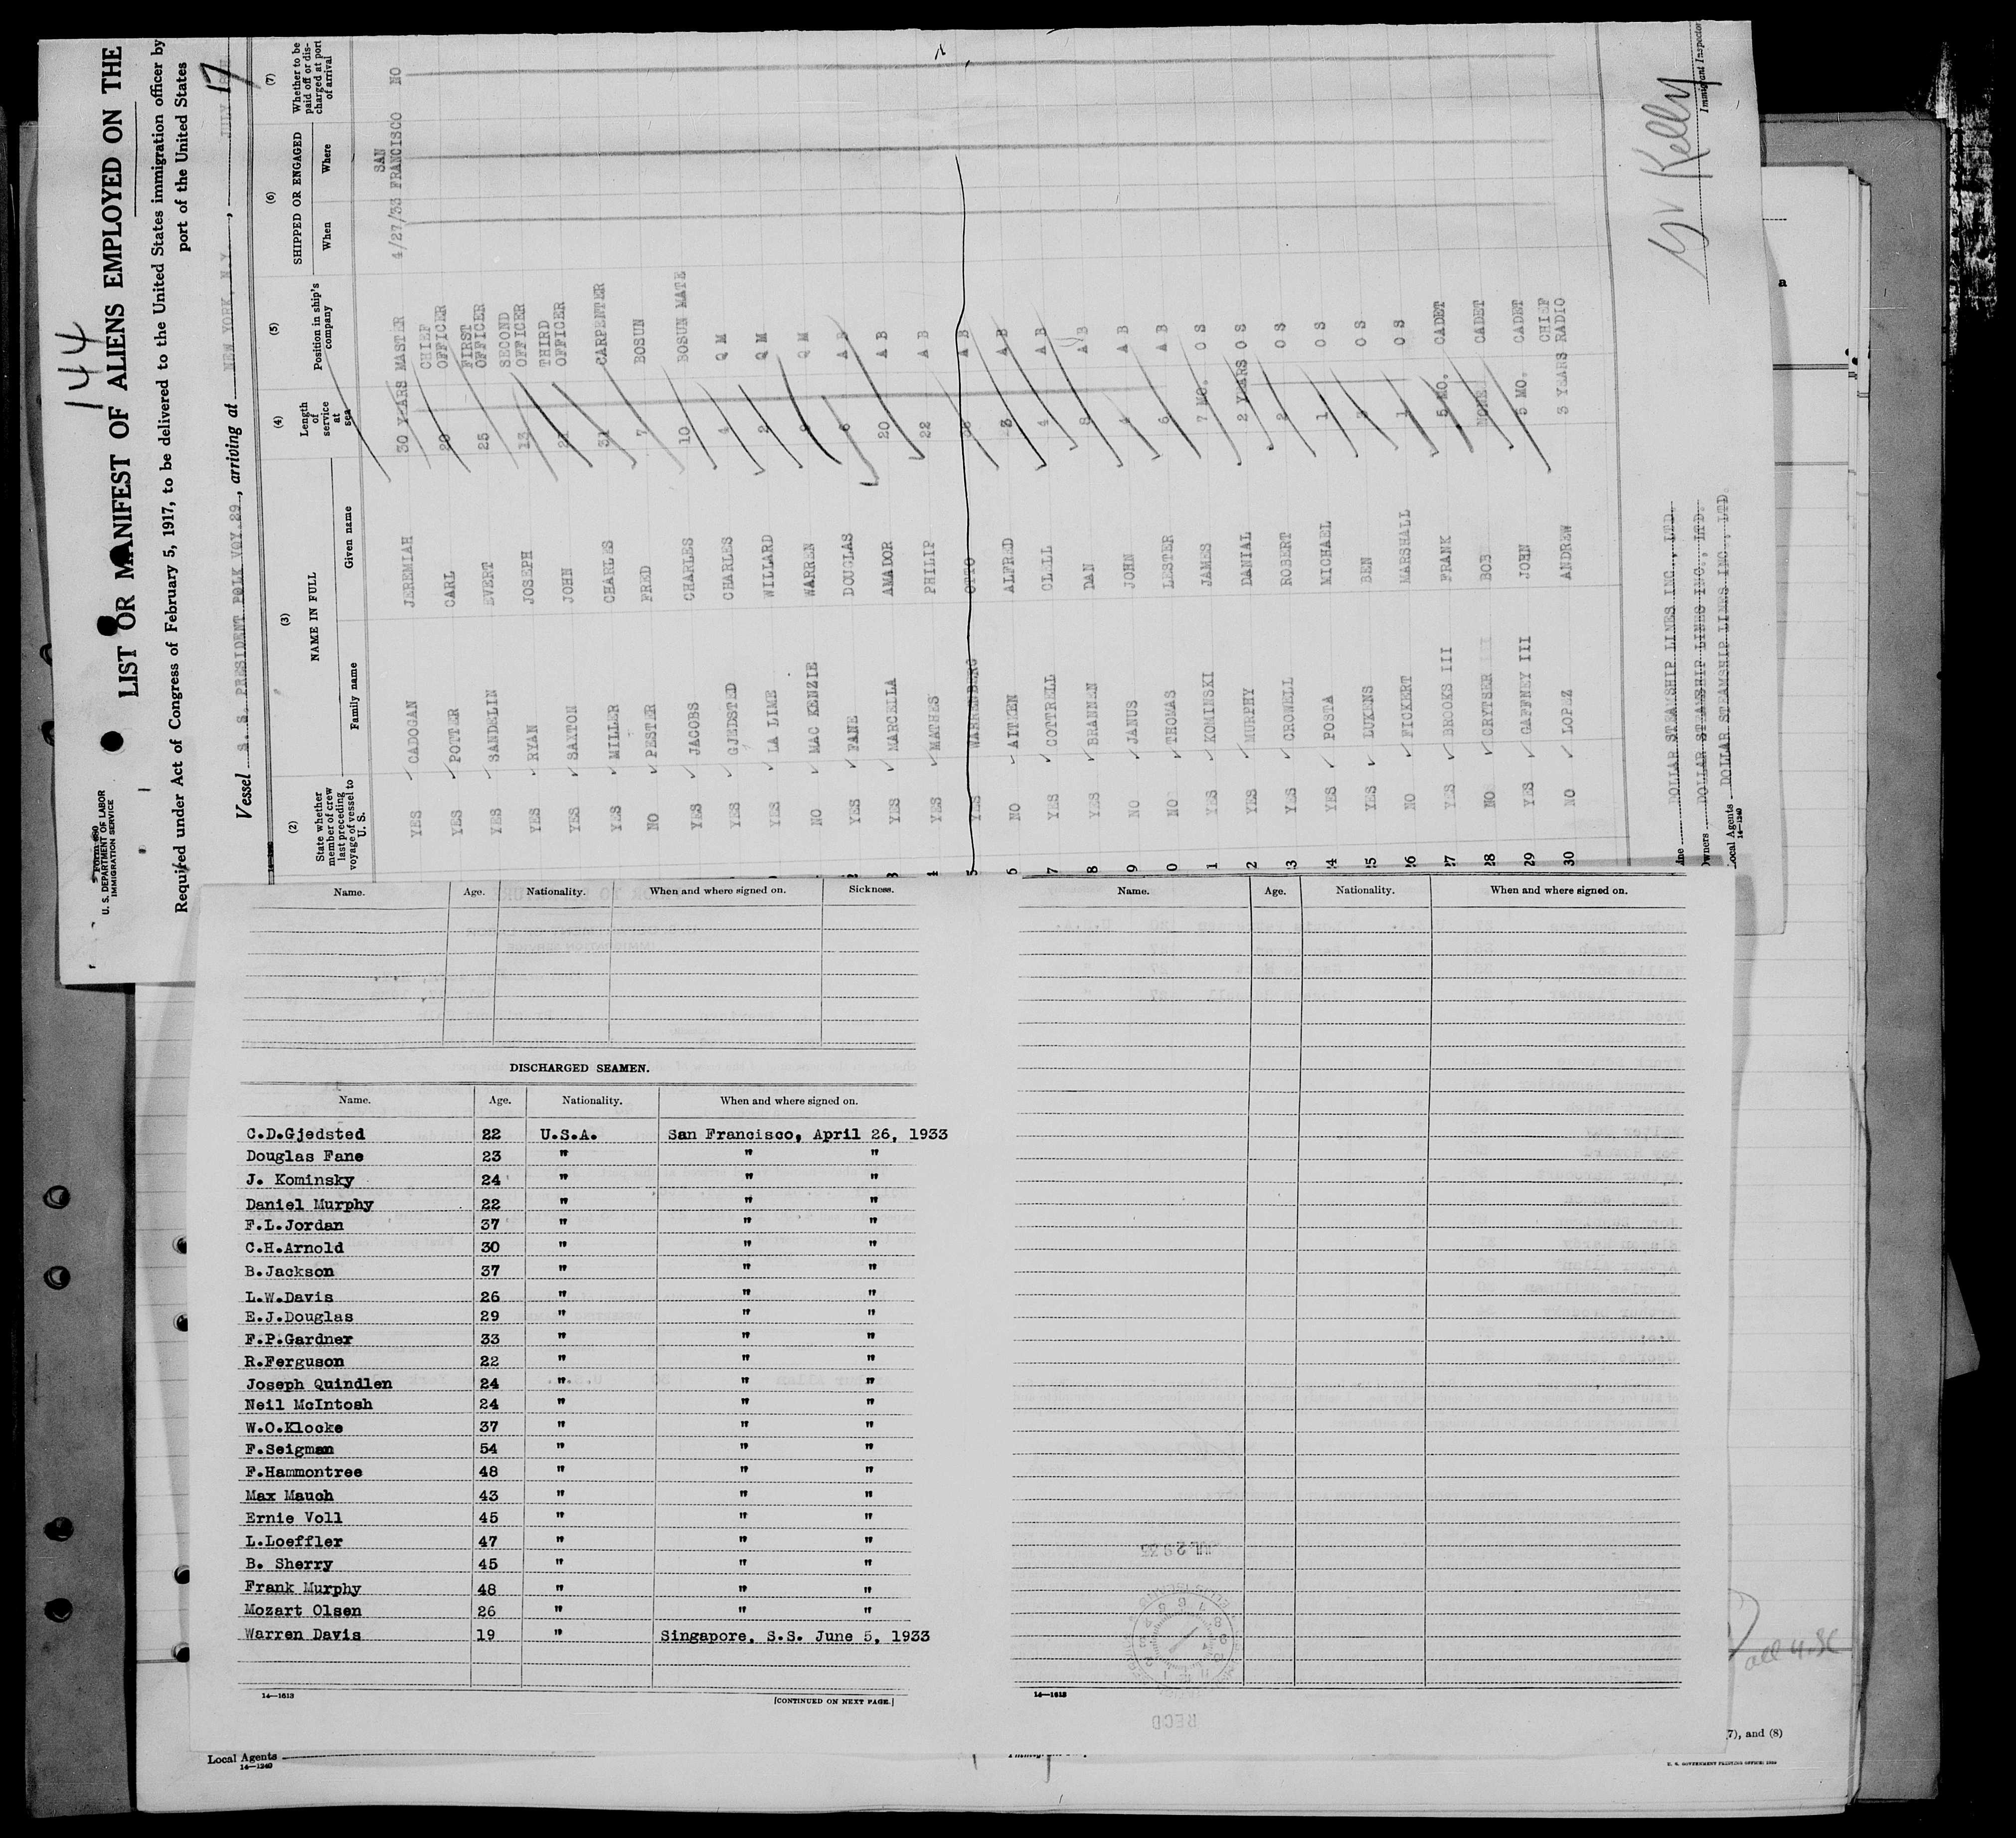 144
5 Form 680
U. S. DEPARTMENT OF LABOR
IMMIGRATION SERVICE
LIST OR MANIFEST OF ALIENS EMPLOYED ON THE
Required under Act of Congress of February 5, 1917, to be delivered to the United States immigration officer by
port of the United States
Vessel S. S. PRESIDENT POLK VOY.29, arriving at NEW YORK, N.Y., JULY 17
(2) (3) (4) (5) (6) (7)
State whether member of crew last preceding voyage of vessel to U. S. NAME IN FULL Family name Given name Length of service at sea Position in ship's company SHIPPED OR ENGAGED When Where Whether to be paid off or discharged at port of arrival
YES CADOGAN JEREMIAH 30 YEARS MASTER 4/27/33 SAN FRANCISCO NO
YES POTTER CARL 20 CHIEF OFFICER
YES SANDELIN EVERT 25 FIRST OFFICER
YES RYAN JOSEPH 13 SECOND OFFICER
YES SAXTON JOHN 21 THIRD OFFICER
YES MILLER CHARLES 31 CARPENTER
NO PESTER FRED 7 BOSUN
YES JACOBS CHARLES 10 BOSUN MATE
YES GJEDSTED CHARLES 4 Q M
YES LA LIME WILLARD 2 Q M
NO MAC KENZIE WARREN Q M
YES FANE DOUGLAS 6 A B
YES MARCELLA AMADOR 20 A B
YES MATHES PHILIP 22 A B
5 YES WAHRENBERG OTTO A B
6 NO AITKEN ALFRED 3 A B
7 YES COTTRELL CLELL 4 A B
8 YES BRANNEN DAN 8 A B
9 NO JANUS JOHN 4 A B
0 NO THOMAS LESTER 6 A B
1 YES KOMINSKI JAMES 7 MO. O S
2 YES MURPHY DANIAL 2 YEARS O S
23 YES CROWELL ROBERT 2 O S
24 YES POSTA MICHAEL 1 O S
25 YES LUKENS BEN 3 O S
26 NO FICKERT MARSHALL 1 O S
27 YES BROOKS III FRANK 5 MO. CADET
28 NO CRYTSER BOB NONE CADET
29 YES GAFFNEY III JOHN 5 MO. CADET
30 NO LOPEZ ANDREW 3 YEARS CHIEF RADIO
Line DOLLAR STEAMSHIP LINES INC., LTD.
Owners DOLLAR STEAMSHIP LINES INC., LTD.
Local Agents DOLLAR STEAMSHIP LINES INC., LTD.
14—1240
Kelly
Immigrant Inspector
Name. Age. Nationality. When and where signed on. Sickness.
DISCHARGED SEAMEN.
Name. Age. Nationality. When and where signed on.
C.D.Gjedsted 22 U.S.A. San Francisco, April 26, 1933
Douglas Fane 23 " " "
J. Kominsky 24 " " "
Daniel Murphy 22 " " "
F.L.Jordan 37 " " "
C.H.Arnold 30 " " "
B.Jackson 37 " " "
L.W.Davis 26 " " "
E.J.Douglas 29 " " "
F.P.Gardner 33 " " "
R.Ferguson 22 " " "
Joseph Quindlen 24 " " "
Neil McIntosh 24 " " "
W.O.Klocke 37 " " "
F.Seigman 54 " " "
F.Hammontree 48 " " "
Max Mauch 43 " " "
Ernie Voll 45 " " "
L.Loeffler 47 " " "
B. Sherry 45 " " "
Frank Murphy 48 " " "
Mozart Olsen 26 " " "
Warren Davis 19 " Singapore, S.S. June 5, 1933
14—1613
[CONTINUED ON NEXT PAGE.]
Name. Age. Nationality. When and where signed on.
14—1613
RECD
all USC
7), and (8)
Local Agents
14—1240